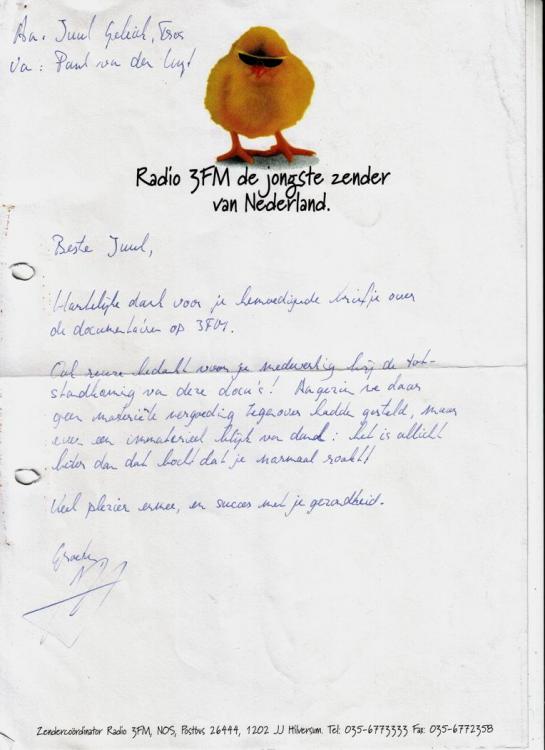 Aan: Juul Geleick, Tros
Van: Paul van der Lugt
Radio 3FM de jongste zender
van Nederland.
Beste Juul,
Hartelijke dank voor je bemoedigende briefje over
de documentaires op 3FM.
Ook reuze bedankt voor je medewerking bij de tot-
standkoming van deze docu's! Aangezien we daar
geen materiële vergoeding tegenover hadden gesteld, maar
even een immaterieel blijk van dank: het is allicht
beter dan dat bocht dat je normaal rookt!
Veel plezier ermee, en succes met je gezondheid.
Groeten
Zendercoördinator Radio 3FM, NOS, Postbus 26444, 1202 JJ Hilversum. Tel: 035-6773333 Fax: 035-6772358